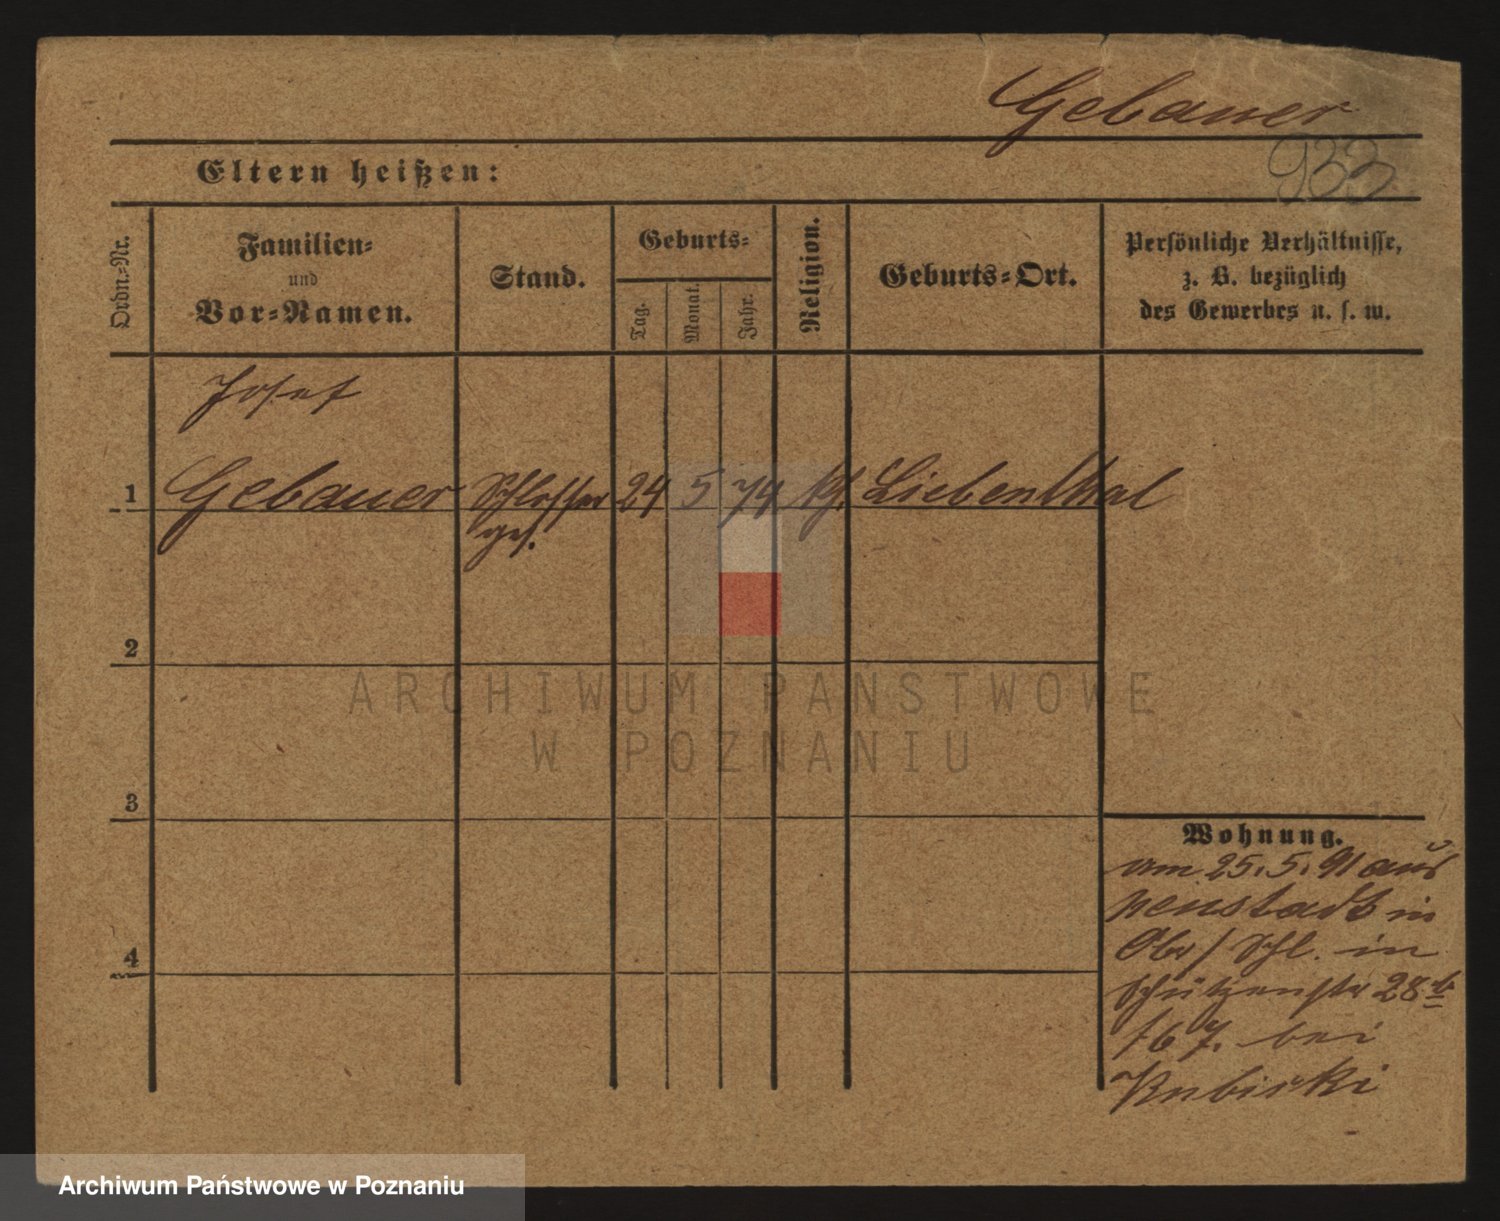 Gebauer
933
Eltern heißen:
Ordn.-Nr.
Familien-
und
Vor-Namen.
Stand.
Geburts-
Tag.
Monat.
Jahr.
Religion.
Geburts-Ort.
Persönliche Verhältnisse,
z. B. bezüglich
des Gewerbes u. s. w.
Josef
1 Gebauer Schlosser 24 5 74 kh. Liebenthal
ges.
2
3
4
Wohnung.
am 25.5.91 aus
Neustadt in
Obr/Schl. in
Schützenstr 28b
bei
Kubicki
ARCHIWUM PAŃSTWOWE
W POZNANIU
Archiwum Państwowe w Poznaniu